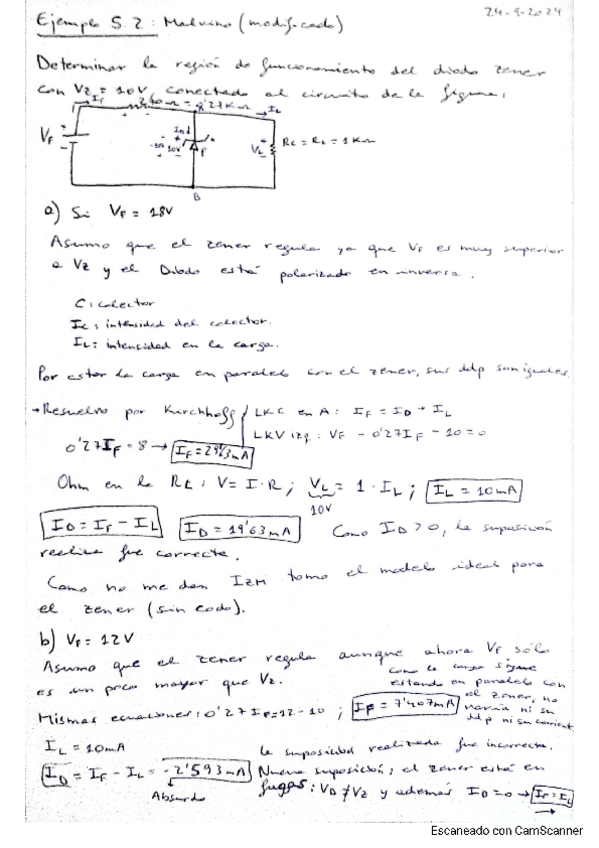 24-9-2024
Ejemplo 5.2: Malvino (modificado)
Determinar la región de funcionamiento del diodo zener
con Vz = 10V, conectado al circuito de la figura:
IF 270Ω = 0'27KΩ IL
VF + - 10V VL + - RC = RL = 1KΩ
B
a) Si VF = 18V
Asumo que el zener regula ya que VF es muy superior
a Vz y el Diodo está polarizado en inversa.
C: colector
IC: intensidad del colector.
IL: intensidad en la carga.
Por estar la carga en paralelo con el zener, sus ddp son iguales.
→ Resuelvo por Kirchhoff LKC en A: IF = ID + IL
LKV izq: VF - 0'27IF - 10 = 0
0'27IF = 8 → IF = 29'63mA
Ohm en la RL: V = I·R; VL = 1·IL; IL = 10mA
10V
ID = IF - IL ID = 19'63mA Como ID > 0, la suposición
realiza fue correcta.
Como no me dan IZM tomo el modelo ideal para
el zener (sin codo).
b) VF = 12V
Asumo que el zener regula aunque ahora VF sólo
es un poco mayor que Vz.
como la carga sigue
estando en paralelo con
el zener, no
varía ni su
ddp ni su corrient
Mismas ecuaciones: 0'27IF = 12 - 10; IF = 7'407mA
IL = 10mA
la suposición realizada fue incorrecta.
ID = IF - IL = -2'593mA Nueva suposición; el zener está en
Absurdo
fugas: VD ≠ Vz y además ID = 0 → IF = IL
Escaneado con CamScanner